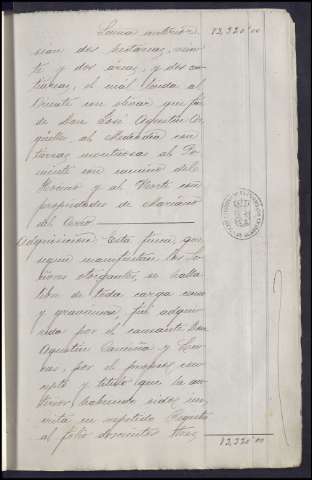 Suma anterior 12,320'00
sion dos hectáreas, vein-
te y dos áreas, y dos cen-
tiáreas, el cual linda al
Oriente con olivar que fué
de Don José Agustin Ar-
güelles, al Mediodía con
tierras montuosas al Po-
niente con camino del
Horno y al Norte con
propiedades de Mariano
del Cerro
Adquisicion - Esta finca, que
segun manifiestan los Se-
ñores otorgantes, se halla
libre de toda carga como
y gravámen, fué adqui-
rida por el causante Don
Agustin y
por el propio con-
cepto y título que la an-
terior, habiendo sido ins-
crita en repetido Registro
al fólio doscientos tres
12,320'00